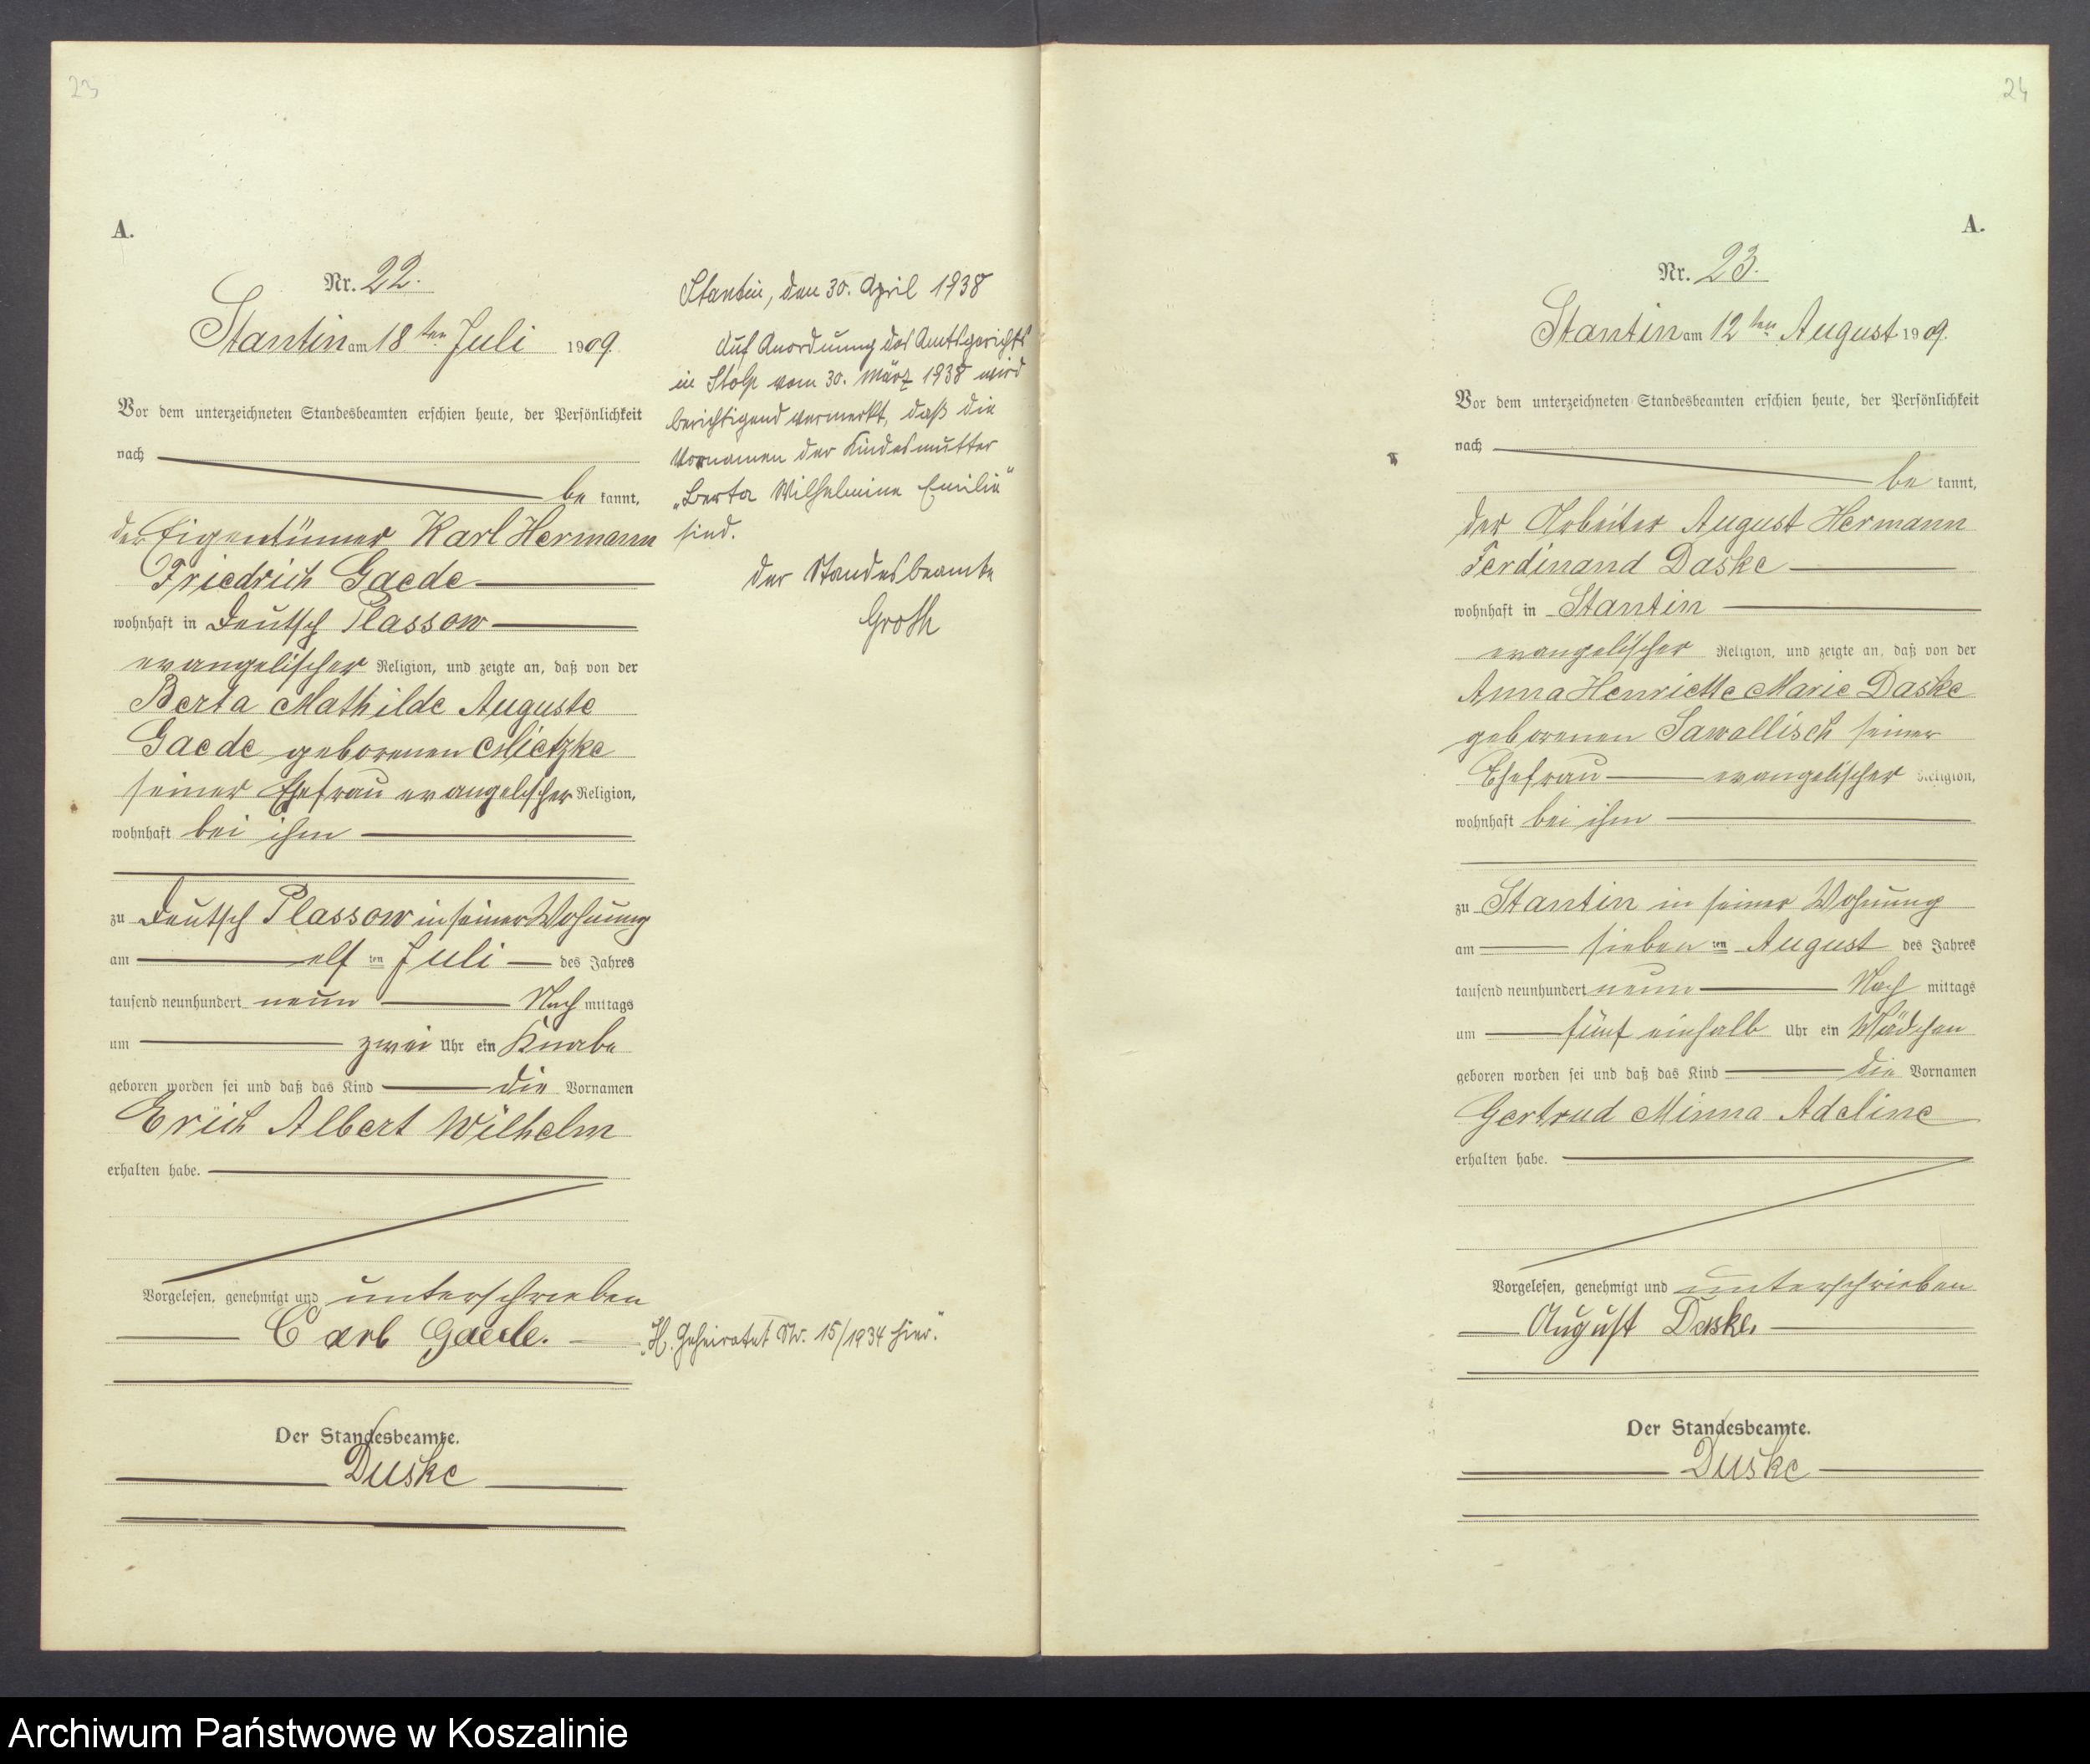 23
A.
Nr. 22.
Stantin am 18ten Juli 1909.
Vor dem unterzeichneten Standesbeamten erschien heute, der Persönlichkeit
nach
be kannt,
der Eigentümer Karl Hermann
Friedrich Gaede
wohnhaft in Deutsch Plassow
evangelischer Religion, und zeigte an, daß von der
Berta Mathilde Auguste
Gaede geborenen Mietzke
seiner Ehefrau evangelischer Religion,
wohnhaft bei ihm
zu Deutsch Plassow in seiner Wohnung
am elf ten Juli des Jahres
tausend neunhundert neun Nach mittags
um zwei Uhr ein Knabe
geboren worden sei und daß das Kind die Vornamen
Erich Albert Wilhelm
erhalten habe.
Vorgelesen, genehmigt und unterschrieben
Carl Gaede.
Der Standesbeamte.
Duske
Stantin, den 30. April 1938
Auf Anordnung des Amtsgerichts
in Stolp vom 30. März 1938 wird
berichtigend vermerkt, daß die
Vornamen der Kindesmutter
„Berta Wilhelmine Emilie"
sind.
Der Standesbeamte
Groth
„H. Geheiratet Nr. 15/1934 hier."
24
A.
Nr. 23.
Stantin am 12ten August 1909.
Vor dem unterzeichneten Standesbeamten erschien heute, der Persönlichkeit
nach
be kannt,
der Arbeiter August Hermann
Ferdinand Daske
wohnhaft in Stantin
evangelischer Religion, und zeigte an, daß von der
Anna Henriette Marie Daske
geborenen Sawallisch seiner
Ehefrau evangelischer Religion,
wohnhaft bei ihm
zu Stantin in seiner Wohnung
am sieben ten August des Jahres
tausend neunhundert neun Nach mittags
um fünf einhalb Uhr ein Mädchen
geboren worden sei und daß das Kind die Vornamen
Gertrud Minna Adeline
erhalten habe.
Vorgelesen, genehmigt und unterschrieben
August Daske.
Der Standesbeamte.
Duske
Archiwum Państwowe w Koszalinie